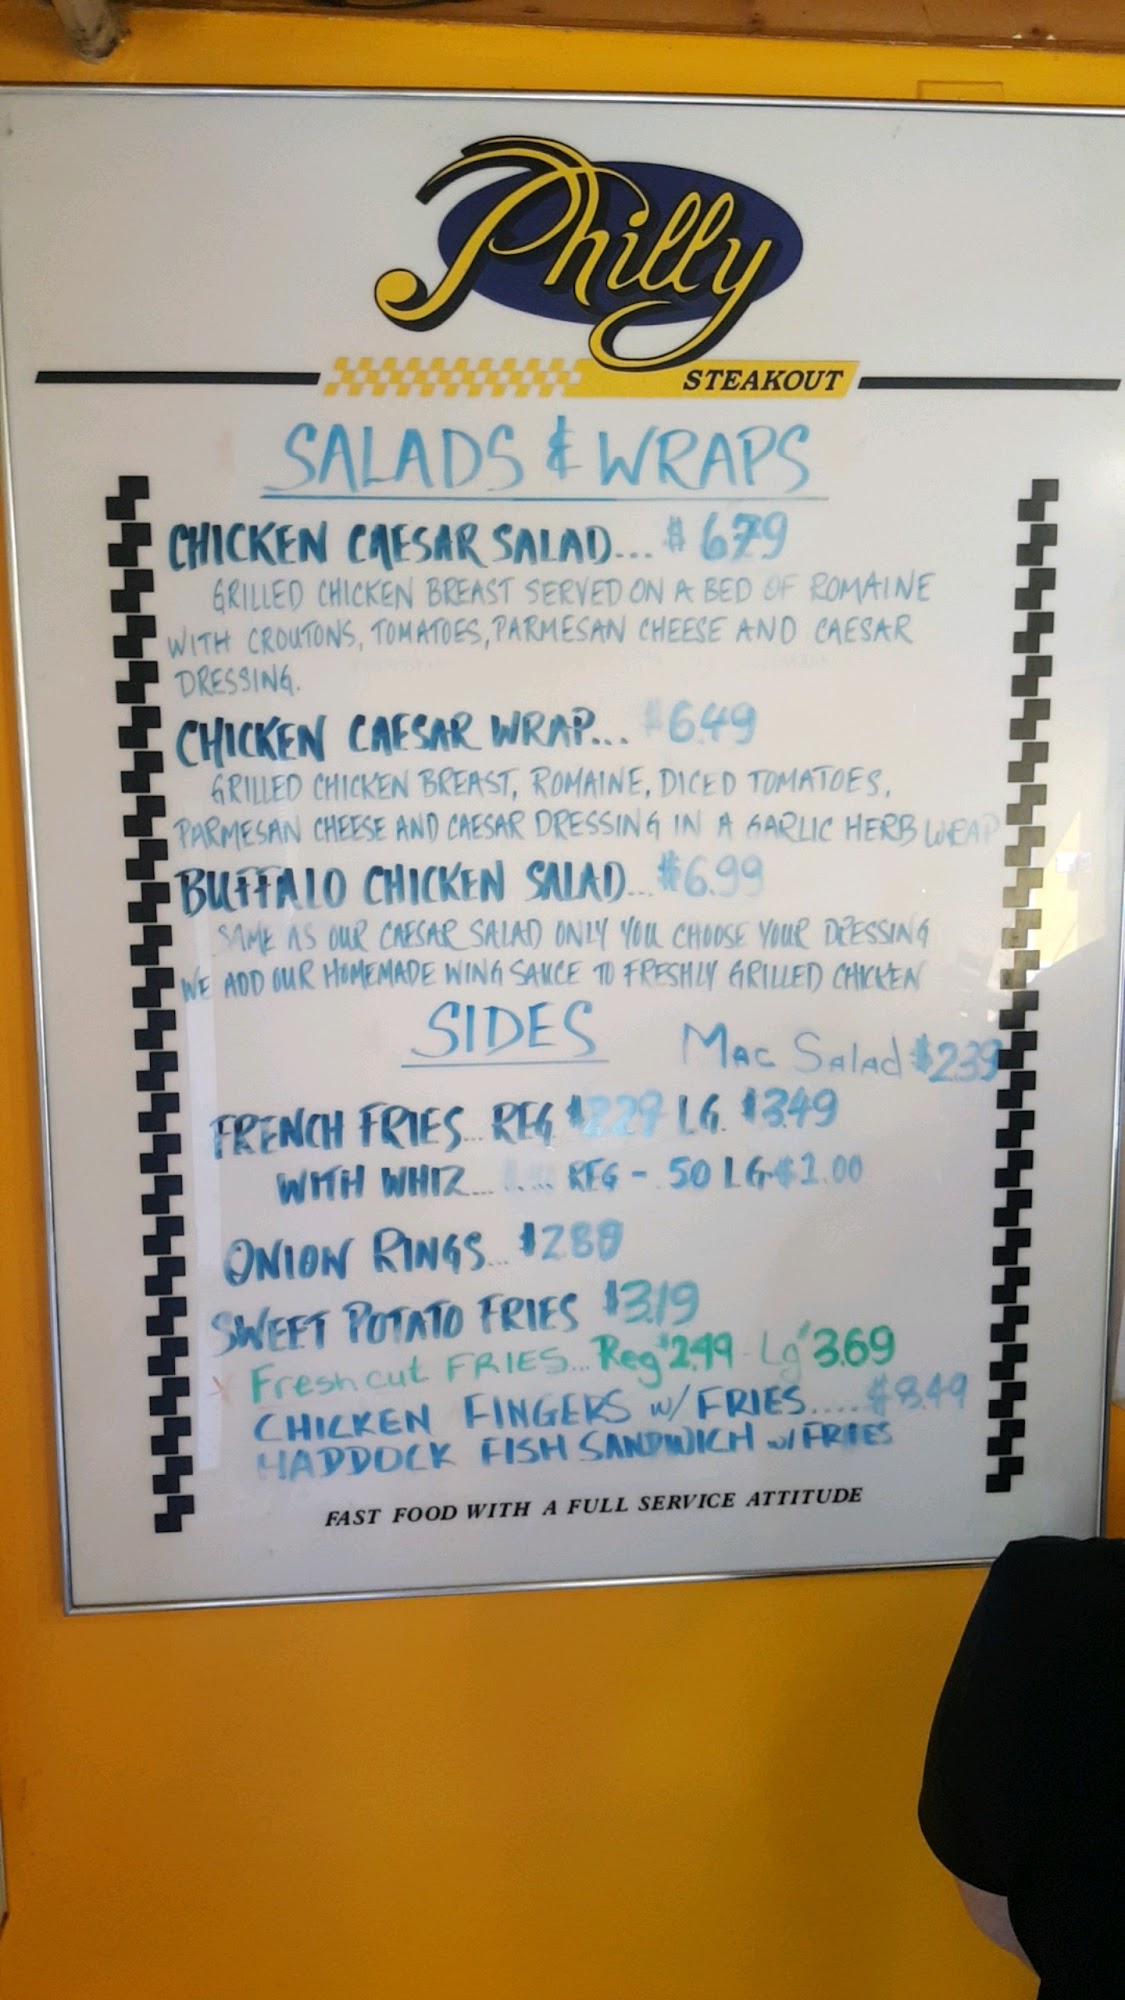 Philly
STEAKOUT
SALADS & WRAPS
CHICKEN CAESAR SALAD... $ 6.79
GRILLED CHICKEN BREAST SERVED ON A BED OF ROMAINE
WITH CROUTONS, TOMATOES, PARMESAN CHEESE AND CAESAR
DRESSING.
CHICKEN CAESAR WRAP... $6.49
GRILLED CHICKEN BREAST, ROMAINE, DICED TOMATOES,
PARMESAN CHEESE AND CAESAR DRESSING IN A GARLIC HERB WRAP
BUFFALO CHICKEN SALAD... $6.99
SAME AS OUR CAESAR SALAD ONLY YOU CHOOSE YOUR DRESSING
WE ADD OUR HOMEMADE WING SAUCE TO FRESHLY GRILLED CHICKEN
SIDES
Mac Salad $2.39
FRENCH FRIES... REG $2.29 LG. $3.49
WITH WHIZ... REG - .50 LG-$1.00
ONION RINGS... $2.89
SWEET POTATO FRIES $3.19
Fresh cut FRIES... Reg $2.99 - Lg $3.69
CHICKEN FINGERS w/ FRIES..... $8.49
HADDOCK FISH SANDWICH w/ FRIES
FAST FOOD WITH A FULL SERVICE ATTITUDE